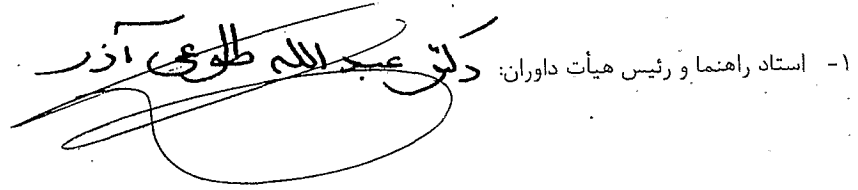 ۱- استاد راهنما و رئیس هیأت داوران: دکتر عبدالله طلوعی آذر